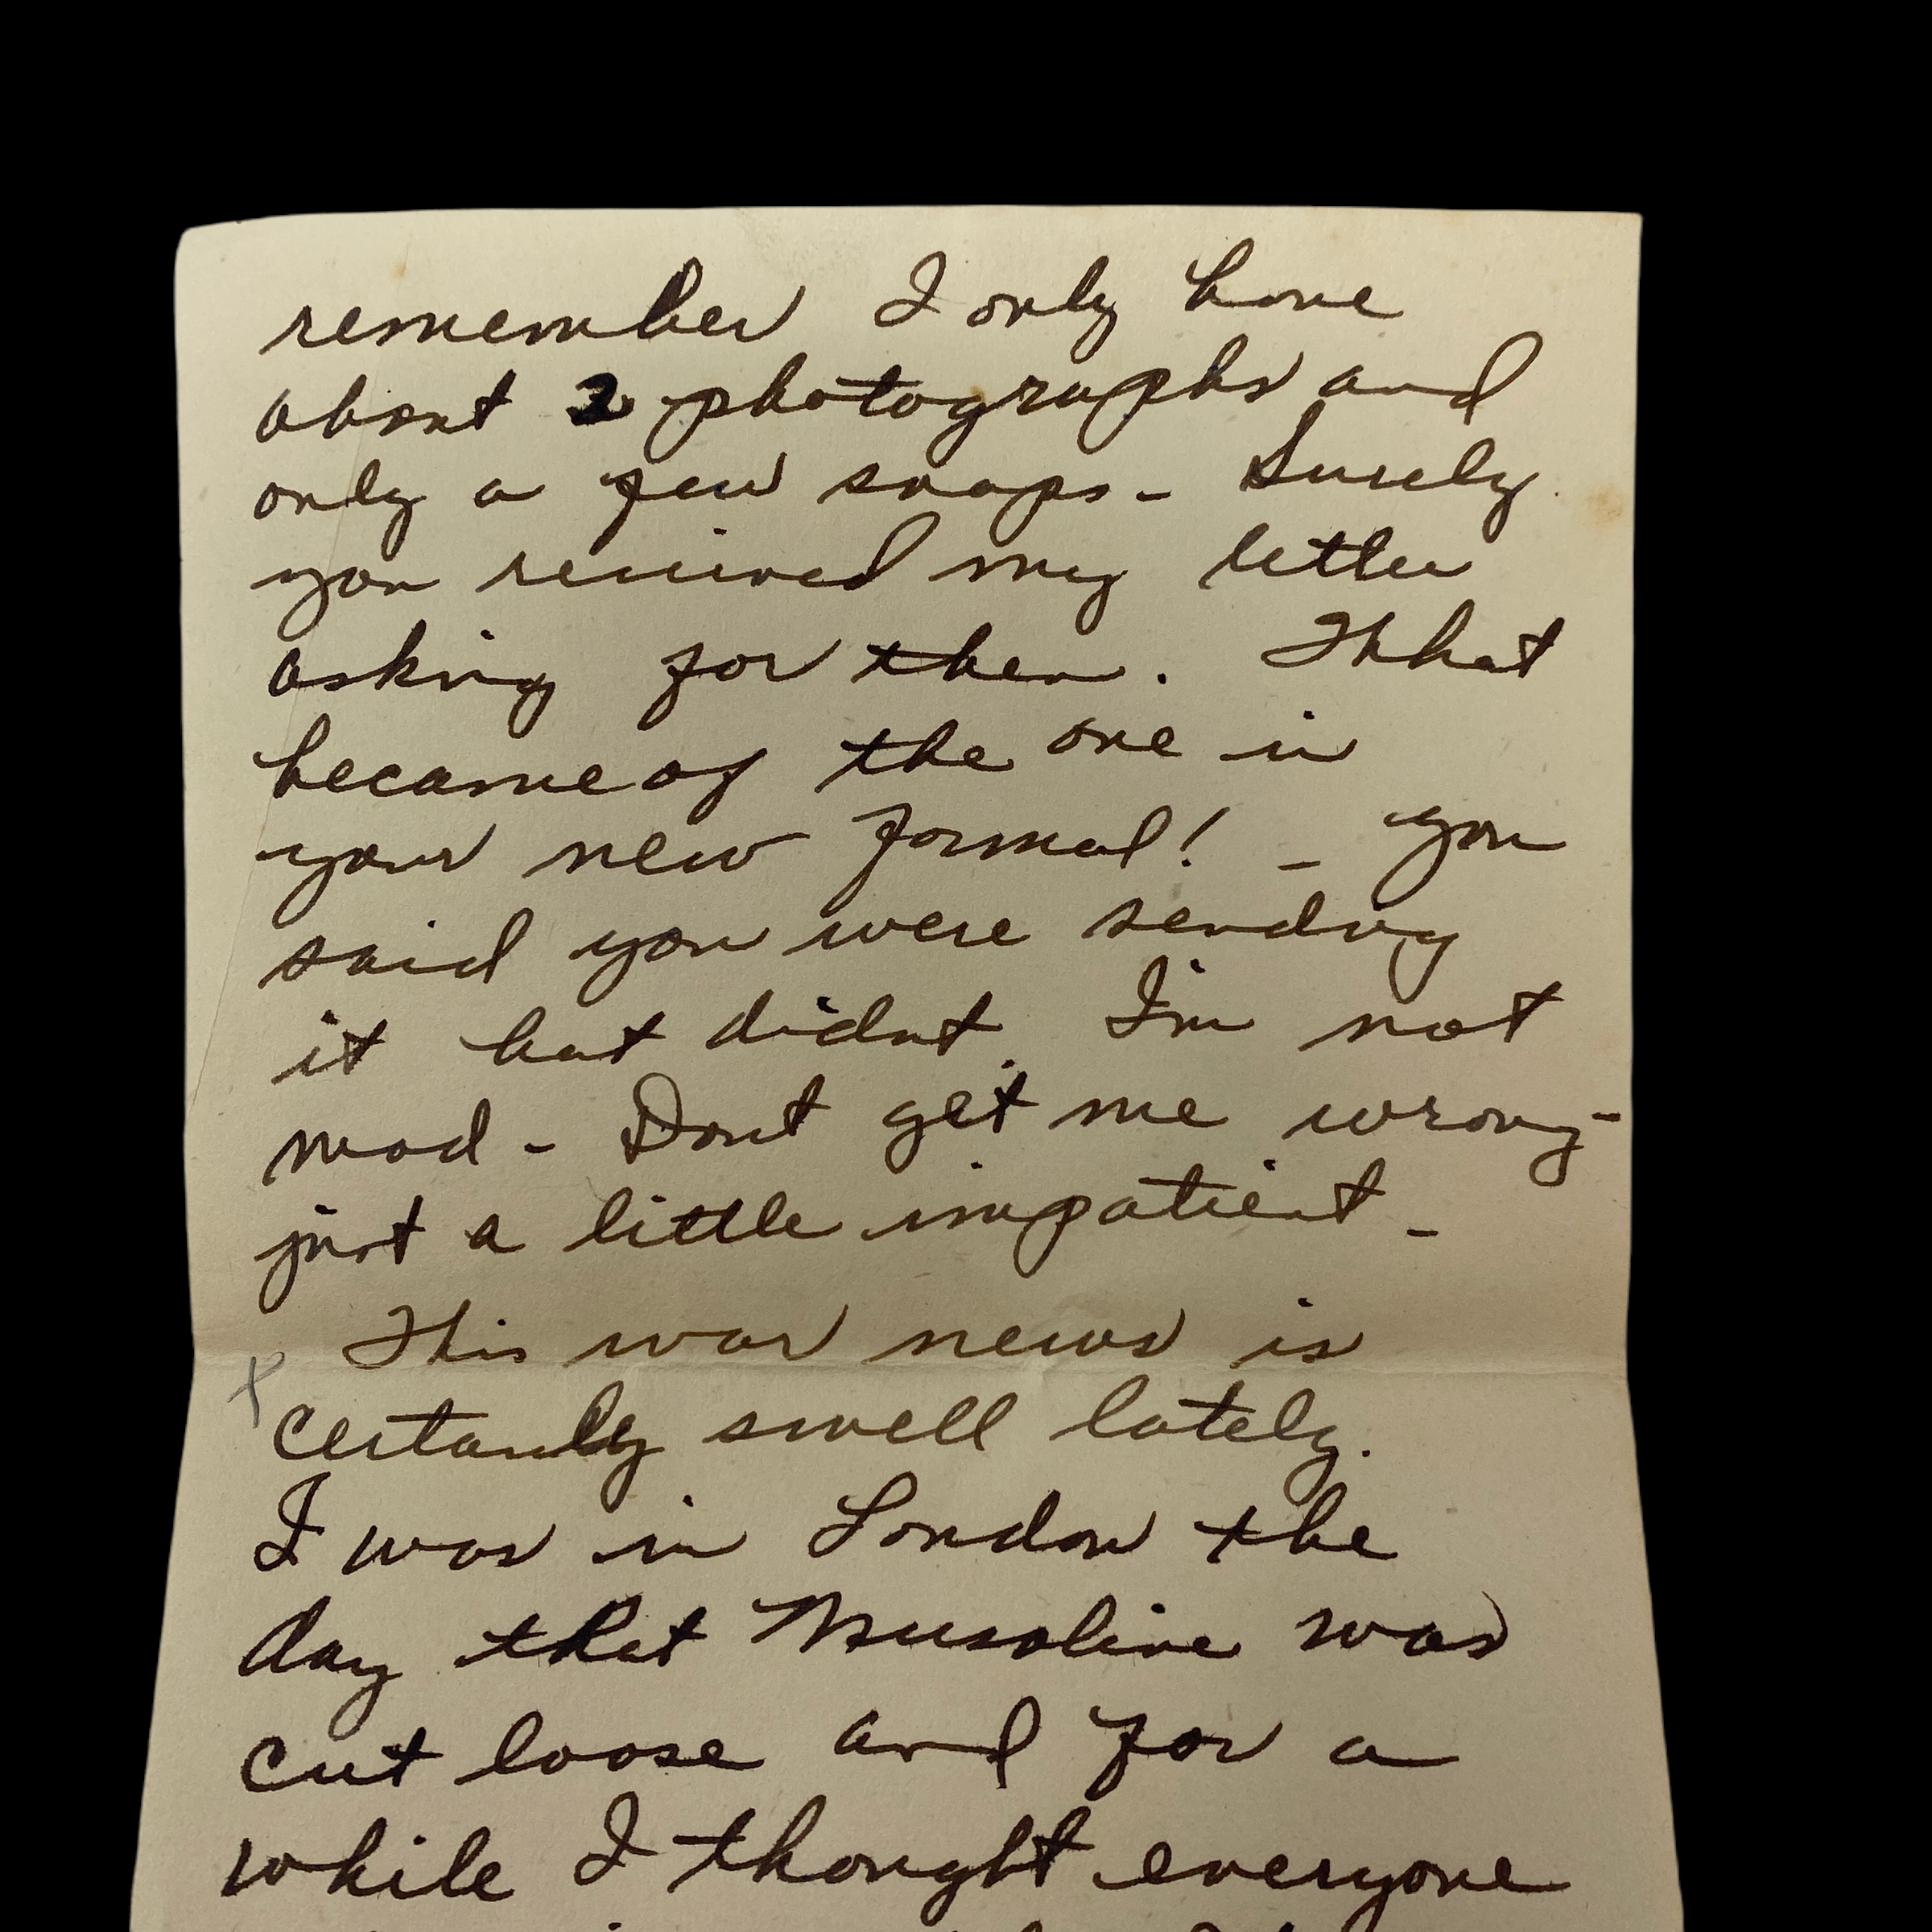 remember I only have
about 2 photographs and
only a few snaps - Surely
you received my letter
asking for them. What
became of the one in
your new formal! - you
said you were sending
it but didnt. I'm not
mad - Dont get me wrong -
just a little impatient -
This war news is
certanly swell lately.
I was in London the
day that Musoline was
cut loose and for a
while I thought everyone